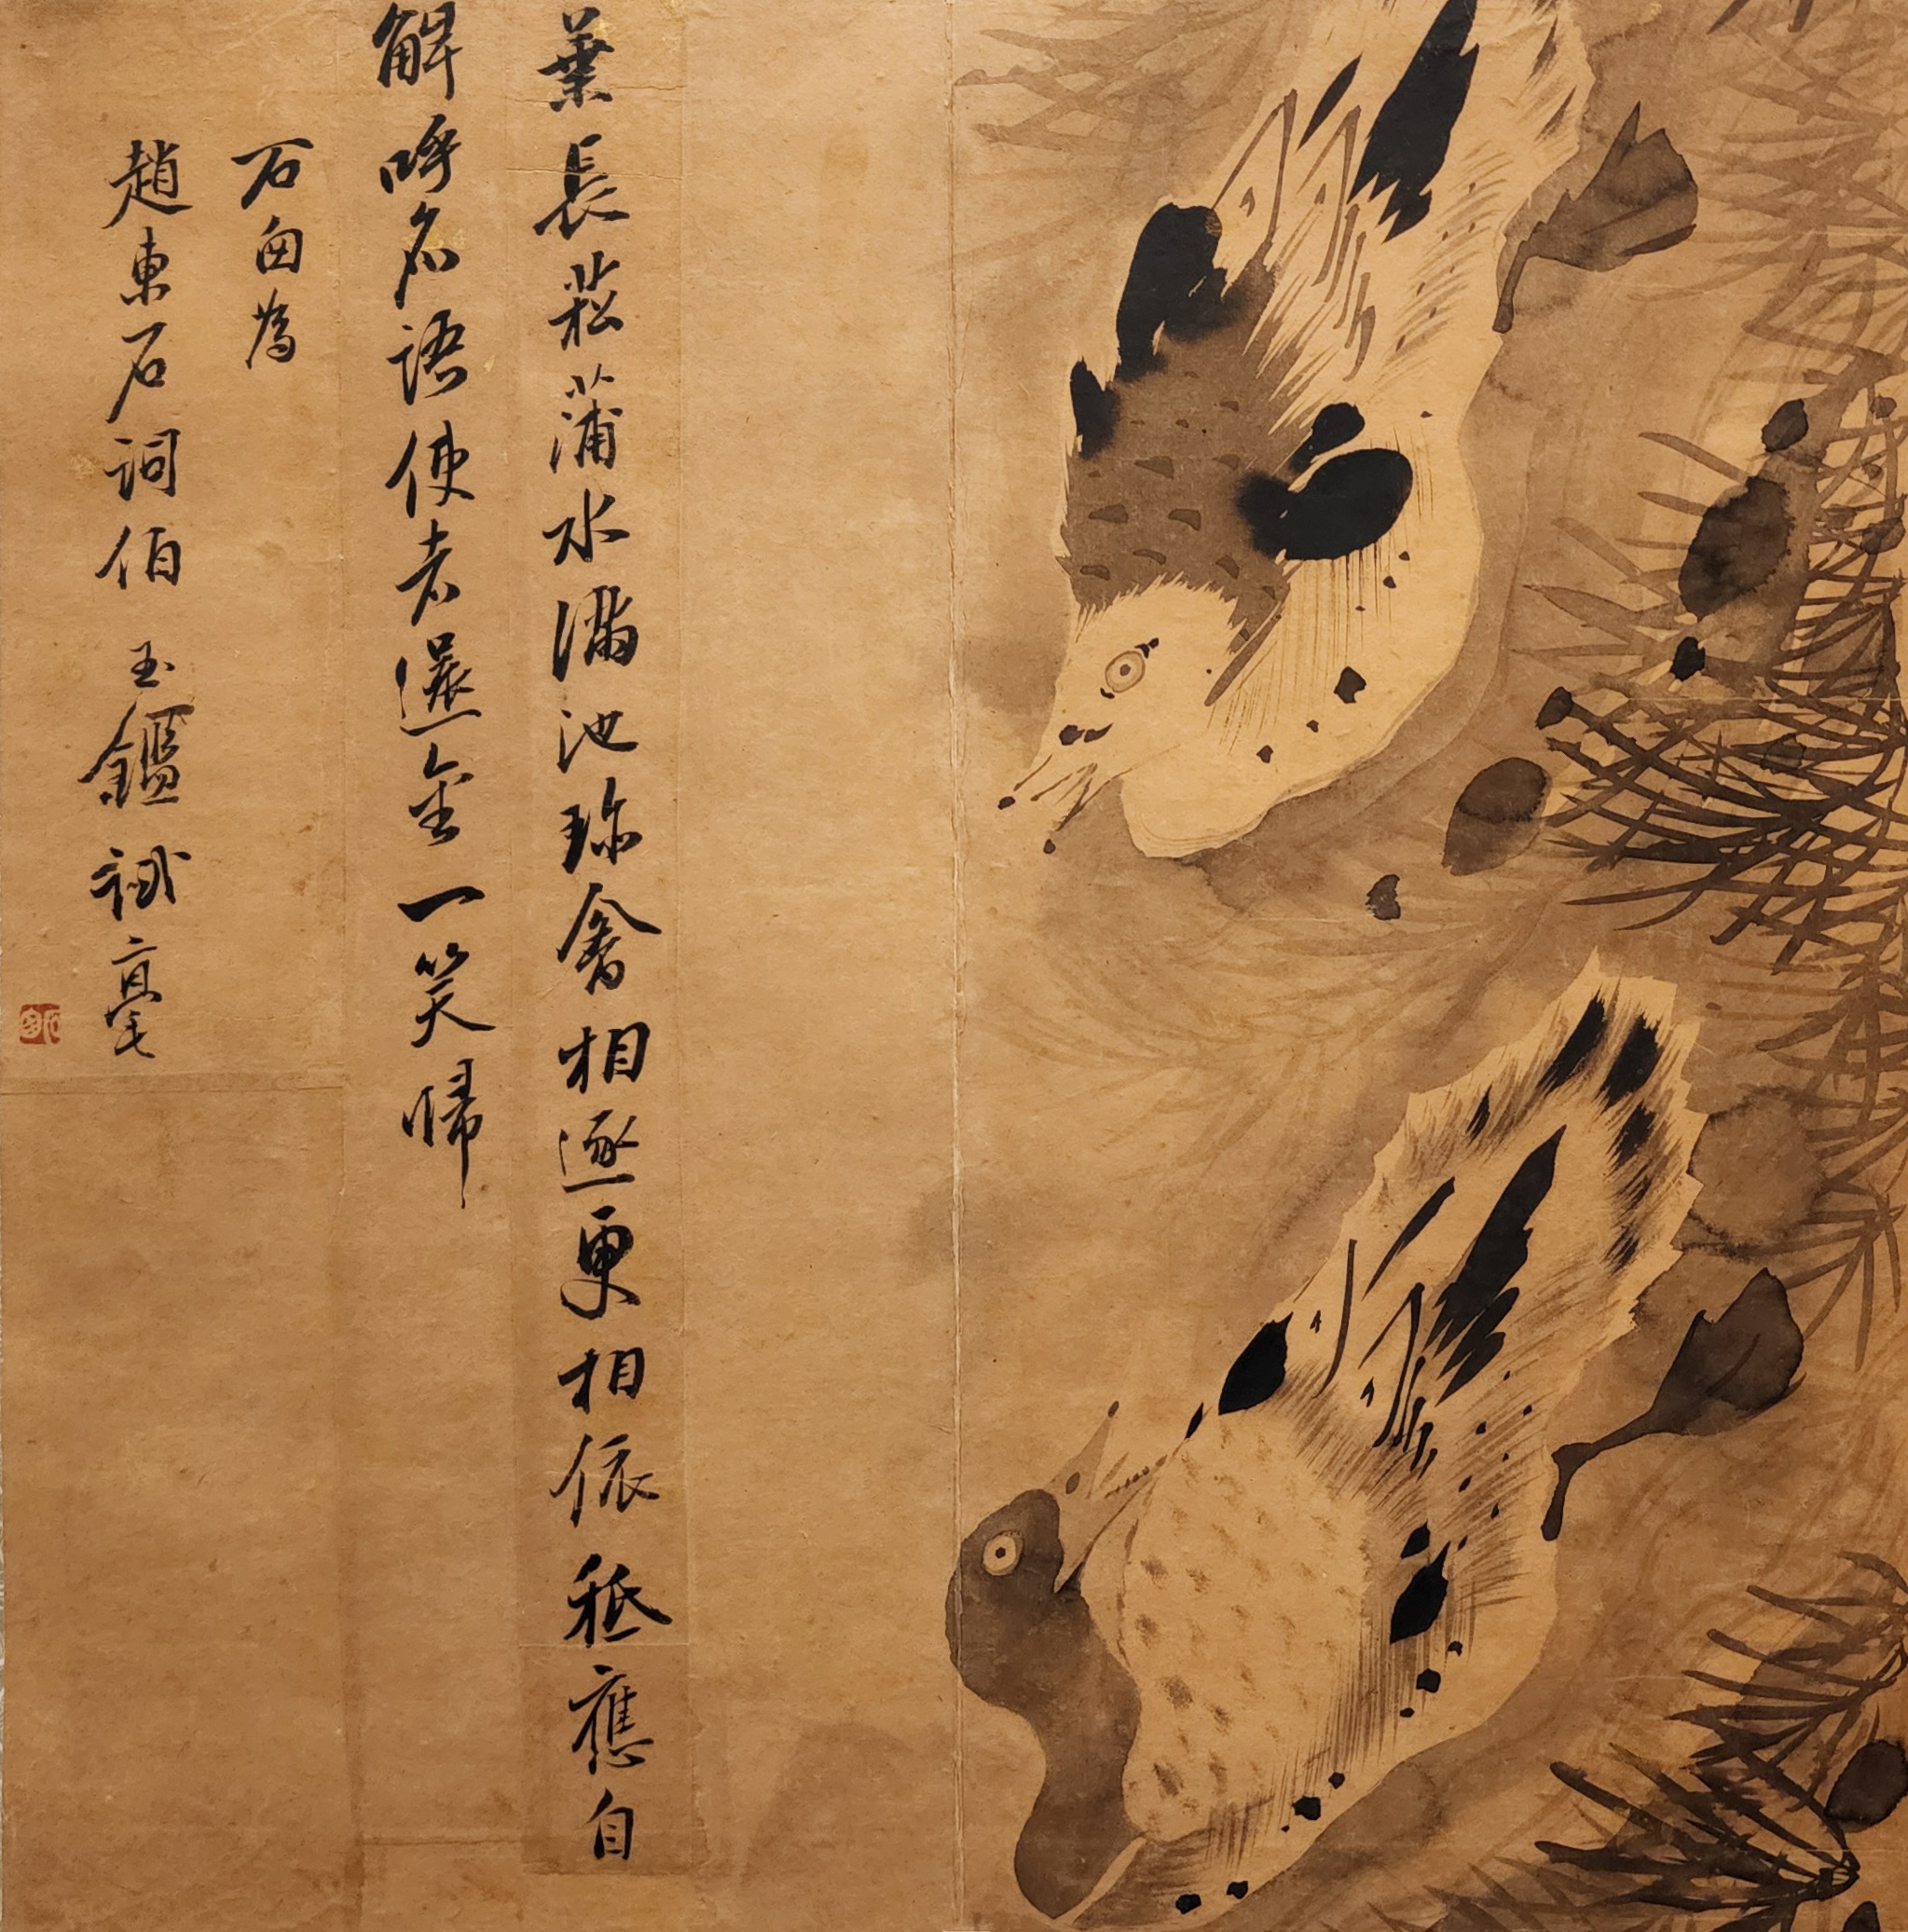 葉長菰蒲水滿池珎禽相逐更相依秪應自
解呼名語使者還金一笑帰
石田為
趙東石詞伯 玉鑑 試毫